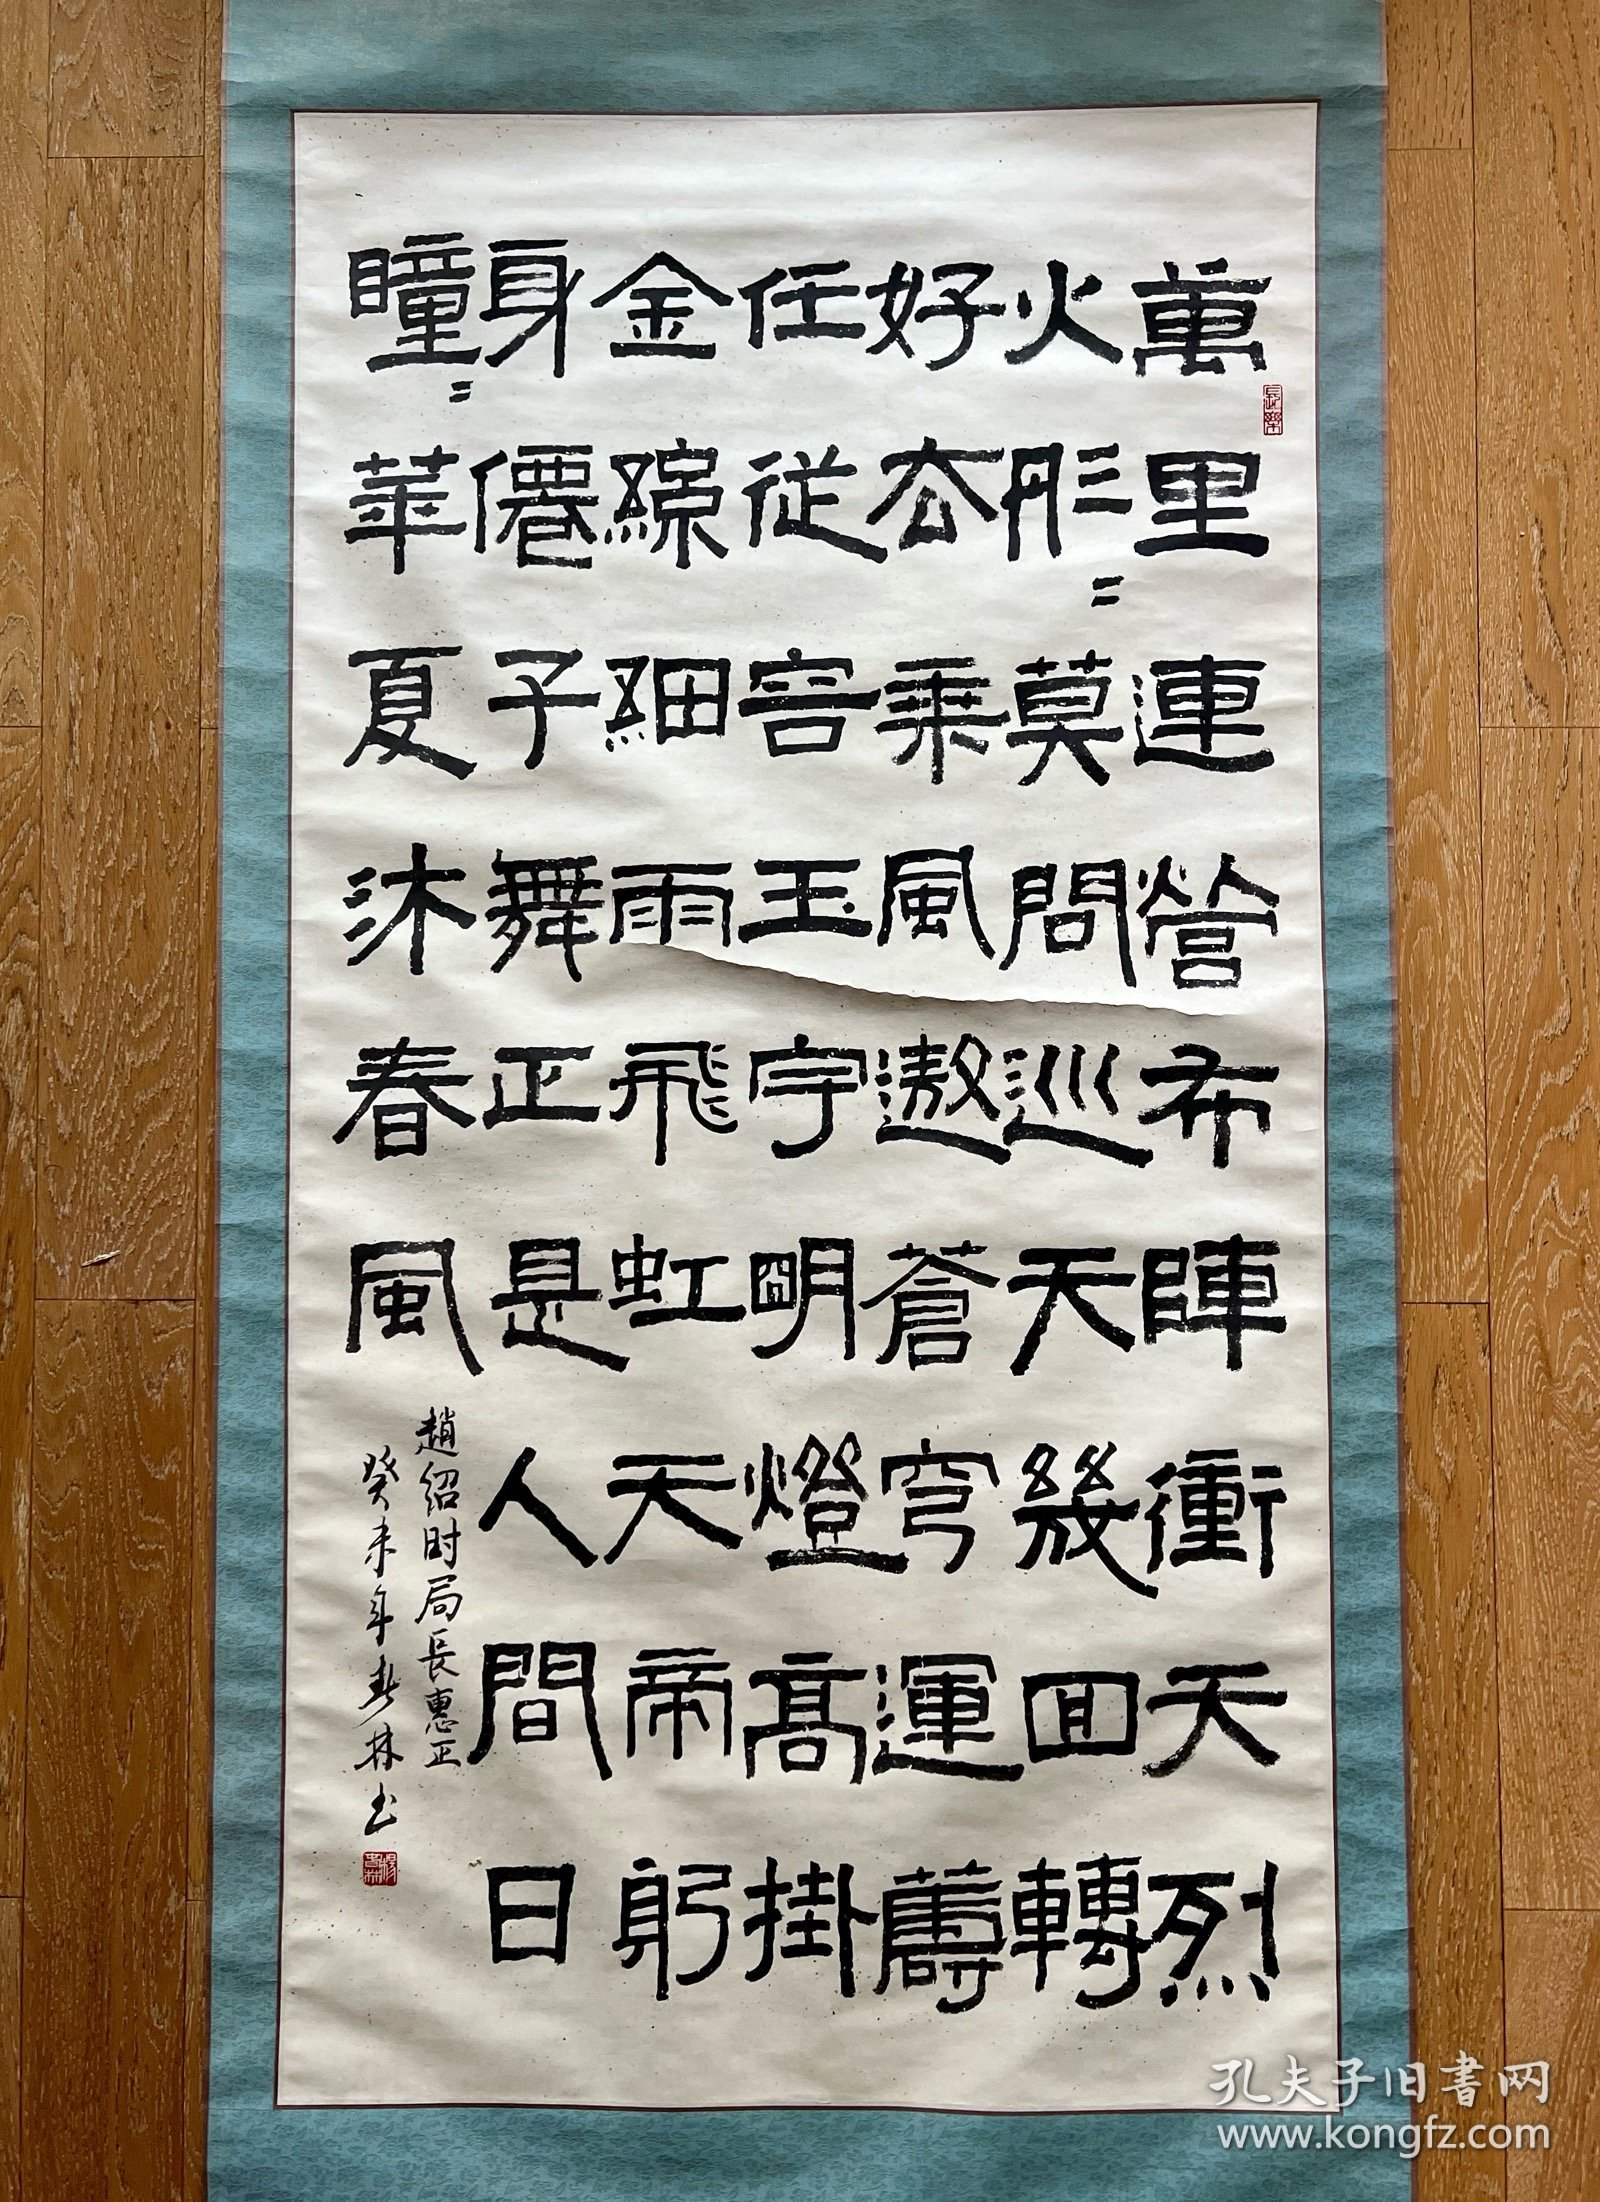 萬里連營布陣衝天烈
火彤〻莫問巡天幾囬轉
好去乘風遨蒼穹運籌
任從容玉宇明燈高掛
金線細雨飛虹天帝躬
身僊子舞正是人間日
瞳〻華夏沐春風
趙紹时局長惠正
癸未年春林书
長樂
孔夫子旧书网
www.kongfz.com